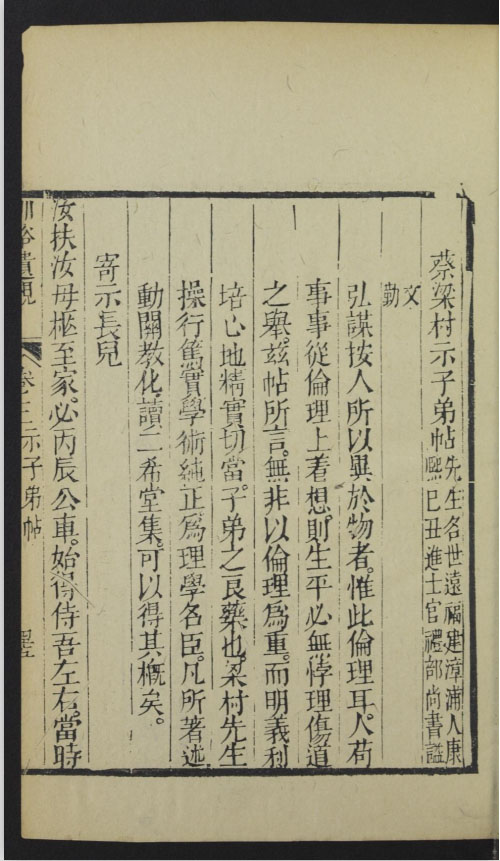 蔡梁村示子弟帖先生名世遠福建漳浦人康
熙己丑進士官禮部尚書謚
文
勤
弘謀按人所以異於物者。惟此倫理耳。人苟
事事從倫理上着想。則生平必無悖理傷道
之舉。兹帖所言。無非以倫理爲重。而明義利
培心地精實切當。子弟之良藥也。梁村先生
操行篤實學術純正爲理學名臣。凡所著述
動關教化。讀二希堂集。可以得其概矣。
寄示長兒
汝扶汝母柩至家。必丙辰公車。始得侍吾左右。當時
訓俗遺規 卷之三 示子弟帖